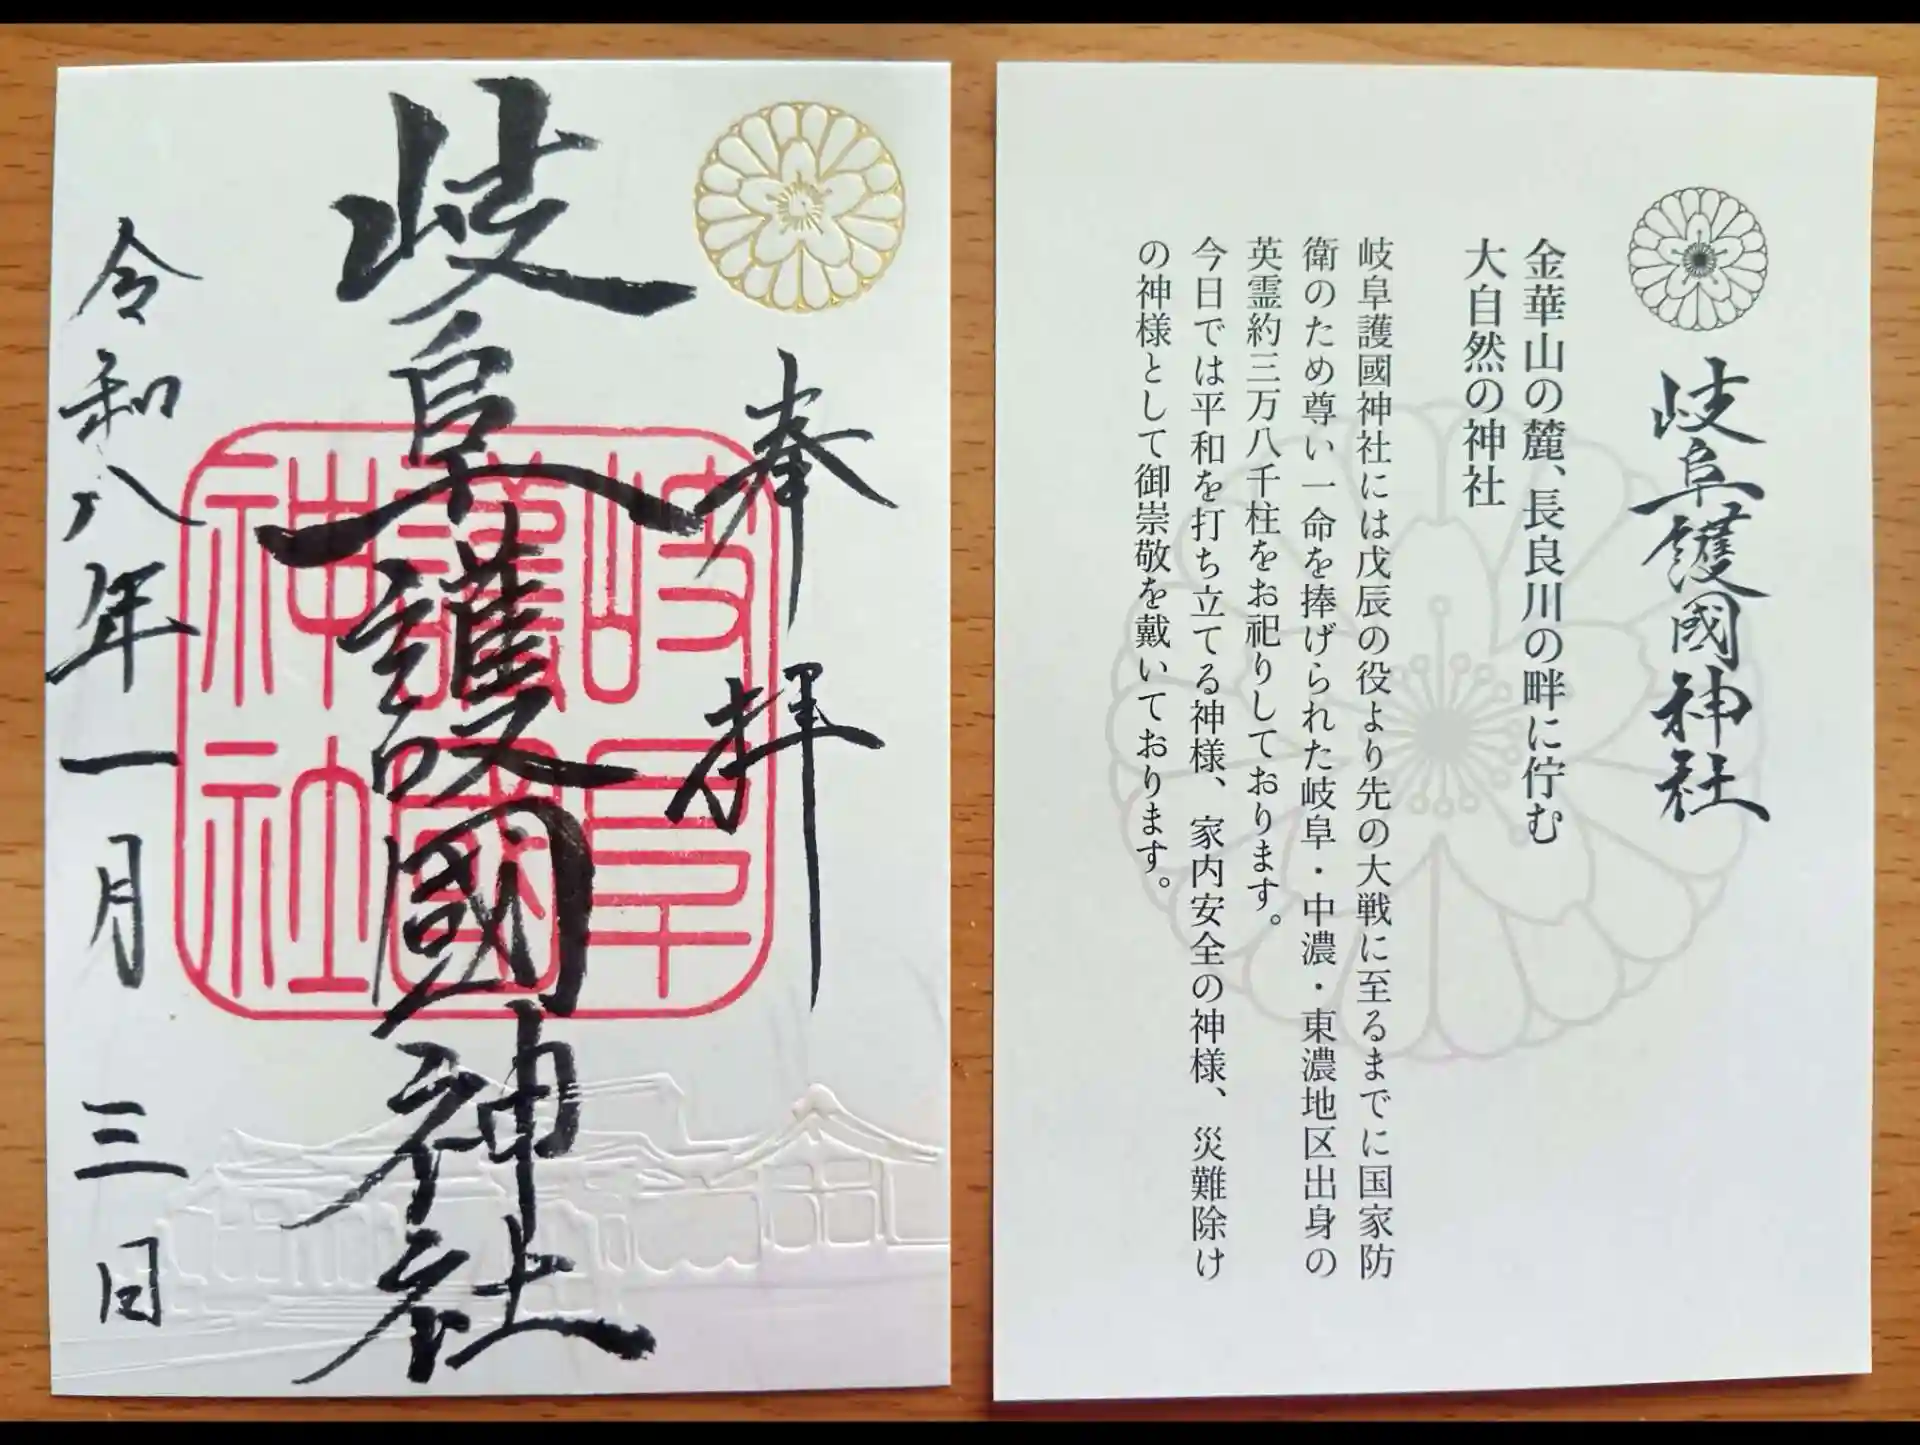 奉拝
岐阜護國神社
令和八年一月三日
岐阜
護國
神社
岐阜護國神社
金華山の麓、長良川の畔に佇む
大自然の神社
岐阜護國神社には戊辰の役より先の大戦に至るまでに国家防
衛のため尊い一命を捧げられた岐阜・中濃・東濃地区出身の
英霊約三万八千柱をお祀りしております。
今日では平和を打ち立てる神様、家内安全の神様、災難除け
の神様として御崇敬を戴いております。